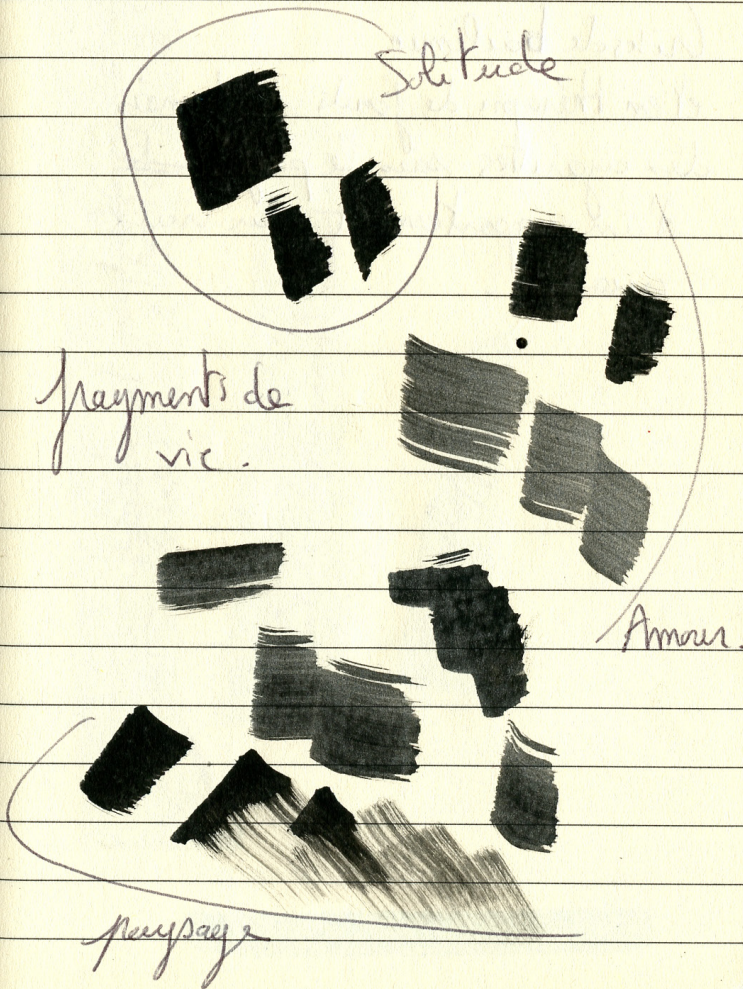 Solitude
fragments de
vie.
Amour.
paysage